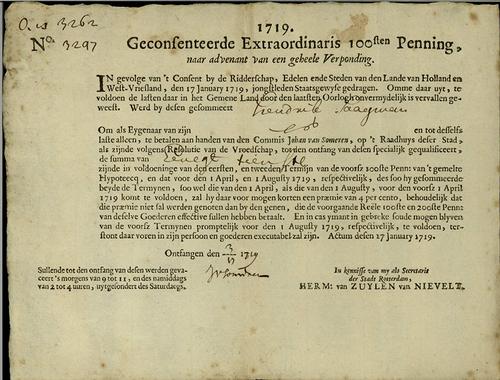 1719.
O. is 3262
Nº. 3297
Geconsenteerde Extraordinaris 100sten Penning,
naar advenant van een geheele Verponding.
IN gevolge van 't Consent by de Ridderschap, Edelen ende Steden van den Lande van Holland en
West-Vriesland, den 17 January 1719, jongstleden Staatsgewyse gedragen. Omme daar uyt, te
voldoen de lasten daar in het Gemene Land door den laatsten Oorlogh onvermydelijk is vervallen ge-
weest. Werd by desen gesommeert Hendrik
Om als Eygenaar van zijn en tot desselfs
laste alleen, te betalen aan handen van den Commis Johan van Someren, op 't Raadhuys deser Stad,
als zijnde volgens Resolutie van de Vroedschap, tot den ontfang van desen specialijk gequalificeert,
de summa van
zijnde in voldoeninge van de eersten, en tweeden Termijn van de voorsz 100ste Pennˢ van 't gemelte
Hypoteecq, en dat voor den 1 April, en 1 Augusty 1719, respectivelijk, des soo hy gesommeerde
beyde de Termynen, soo wel die van den 1 April, als die van den 1 Augusty, voor den voorsz 1 April
1719 komt te voldoen, zal hy daar voor mogen korten een præmie van 4 per cento, behoudelijk dat
die præmie niet sal werden genoten dan by den genen, die de voorgaande Reële 100ste en 200ste Penn
van deselve Goederen effective sullen hebben betaalt. En in cas ymant in gebreke soude mogen blyven
van de voorsz Termynen promptelijk voor den 1 Augusty 1719, respectivelijk, te voldoen, ter-
stont daar voren in zijn persoon en goederen executabel zal zijn. Actum desen 17 January 1719.
Ontfangen den 3/17 1719
JvSomeren
Sullende tot den ontfang van desen werden geva-
ceert 's morgens van 9 tot 11, en des namiddags
van 2 tot 4 uuren, uytgesondert des Saturdaegs.
In kennisse van my als Secretaris
der Stads Rotterdam,
HERMˢ van ZUYLEN van NIEVELT.